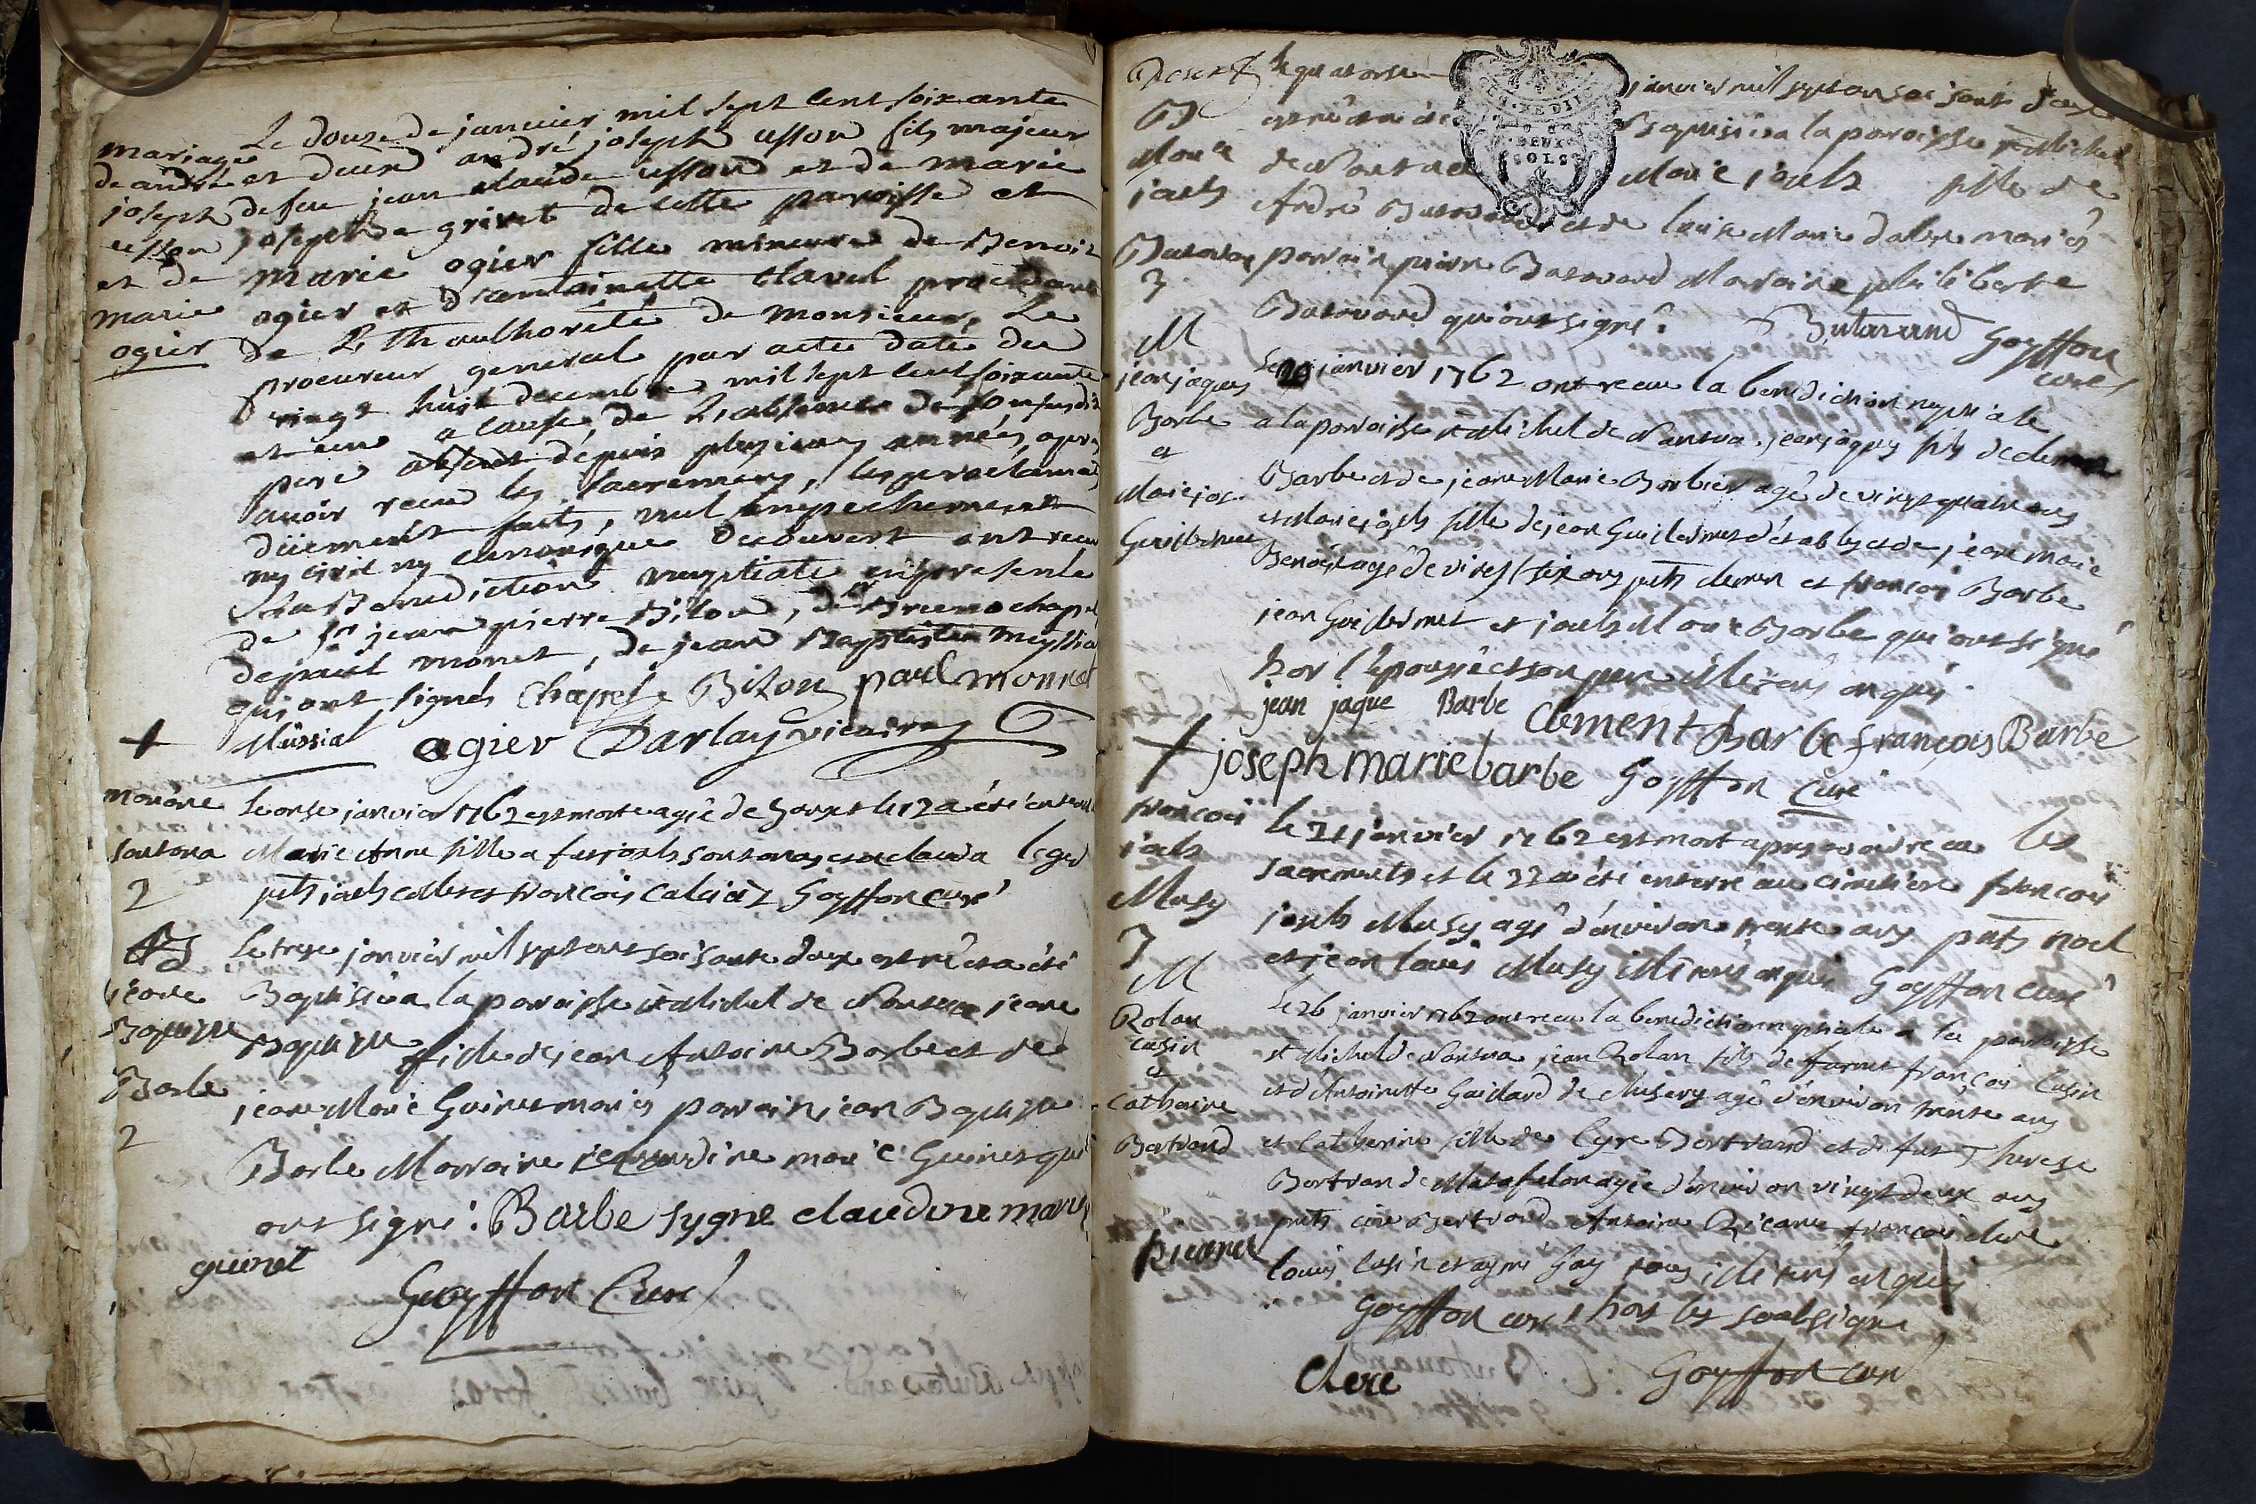 mariage
de andré
joseph
usson
et de
marie
ogier
Le douze de janvier mil sept cent soixante
et deux andré joseph usson fils majeur
de feu jean claude usson et de marie
josephe grivet de cette paroisse et
marie ogier fille mineure de Benoit
ogier et d'antoinette clavel procedant
de l'authorité de monsieur Le
procureur general par acte daté du
vingt huit decembre mil sept cent soixante
et un a cause de l'absence de son susdit
pere absent depuis plusieurs années, apres
avoir receu les sacremens, les proclamaõ
düement faits, nul empechement
ny civil ny canonique decouvert ont receu
la Benediction nuptiale en presence
de sr jean pierre Bilon, de Bruno chapel
de paul monet, de jean Baptiste meyssia
qui ont signés Chapel Bilon paul monnet
Mussiat ogier Darlay vicaire
+
monõne
santona
2
Le onse janvier 1762 est morte agée de jours et le 12 a été enterré
Marie Anne fille a feu josph santona et de claudia leger
pñts josph collet et françois calciat Goyffon curé
B
jeane
Baptiste
Barbe
2
Le trese janvier mil sept cens soisante deux est née et a été
Baptisée a la paroisse st Michel de Nantua jeane
Baptiste fille de jean Antoine Barbe et de
jeane Marie Guinet mariés parrain jean Baptiste
Barbe Marraine claudine marie Guinet qui
ont signé: Barbe sygne claudine marie
guinet
Goyffon Curé
B
Marie
josph
Butavand
3
Le quatorse janvier mil sept cens soisante deux
est née et a été Baptisée a la paroisse st Michel
de Nantua Marie josph fille de
André Butavand et de louise Marie dalex mariés
parrain pierre Butavand Marraine philiberte
Butavand qui ont signé: Butavand Goyffon
curé
DEUX
SOLS
M
jean jaques
Barbe
et
Marie jos.
Guillermet
Le 20 janvier 1762 ont receu la benediction nuptiale
a la paroisse st Michel de Nantua, jean jaques fils de clement
Barbe et de jeane Marie Barbier agé de vingt quatre ans
et Marie josph fille de jean Guillermet d'etables et de jeane marie
Benoit agée de vingt six ans pñts clement et françois Barbe
jean Guillermet et josph Marie Barbe qui ont signé
hor l'epousée et son pere illeterés enquis
jean jaque Barbe Clement barbe françois Barbe
+ joseph marie barbe Goyffon Curé
françois
josph
Musy
3
le 21 janvier 1762 est mort apres avoir receu les
sacrements et le 22 a été enterré au cimetiere françois
josph Musy agé d'environ trente ans pñts noel
et jean louis Musy illiterés enquis Goyffon curé
M
Rolan
cusin
et
Catherine
Bertrand
Le 26 janvier 1762 ont receu la benediction nuptiale a la paroisse
st Michel de Nantua, jean Rolan fils de françois cusin
et d'Antoinette Gaidard de agé d'environ trente ans
et Catherine fille de Cyre Bertrand et de feue Therese
Bertran de Matafelon agée d'environ vingt deux ans
pñts cire Bertrand Antoine Ricanet françois clere
louis cusin et aymé Gay tous illiterés enquis
Goyffon curé hor les soubsigné
Ricanet
Clere Goyffon curé